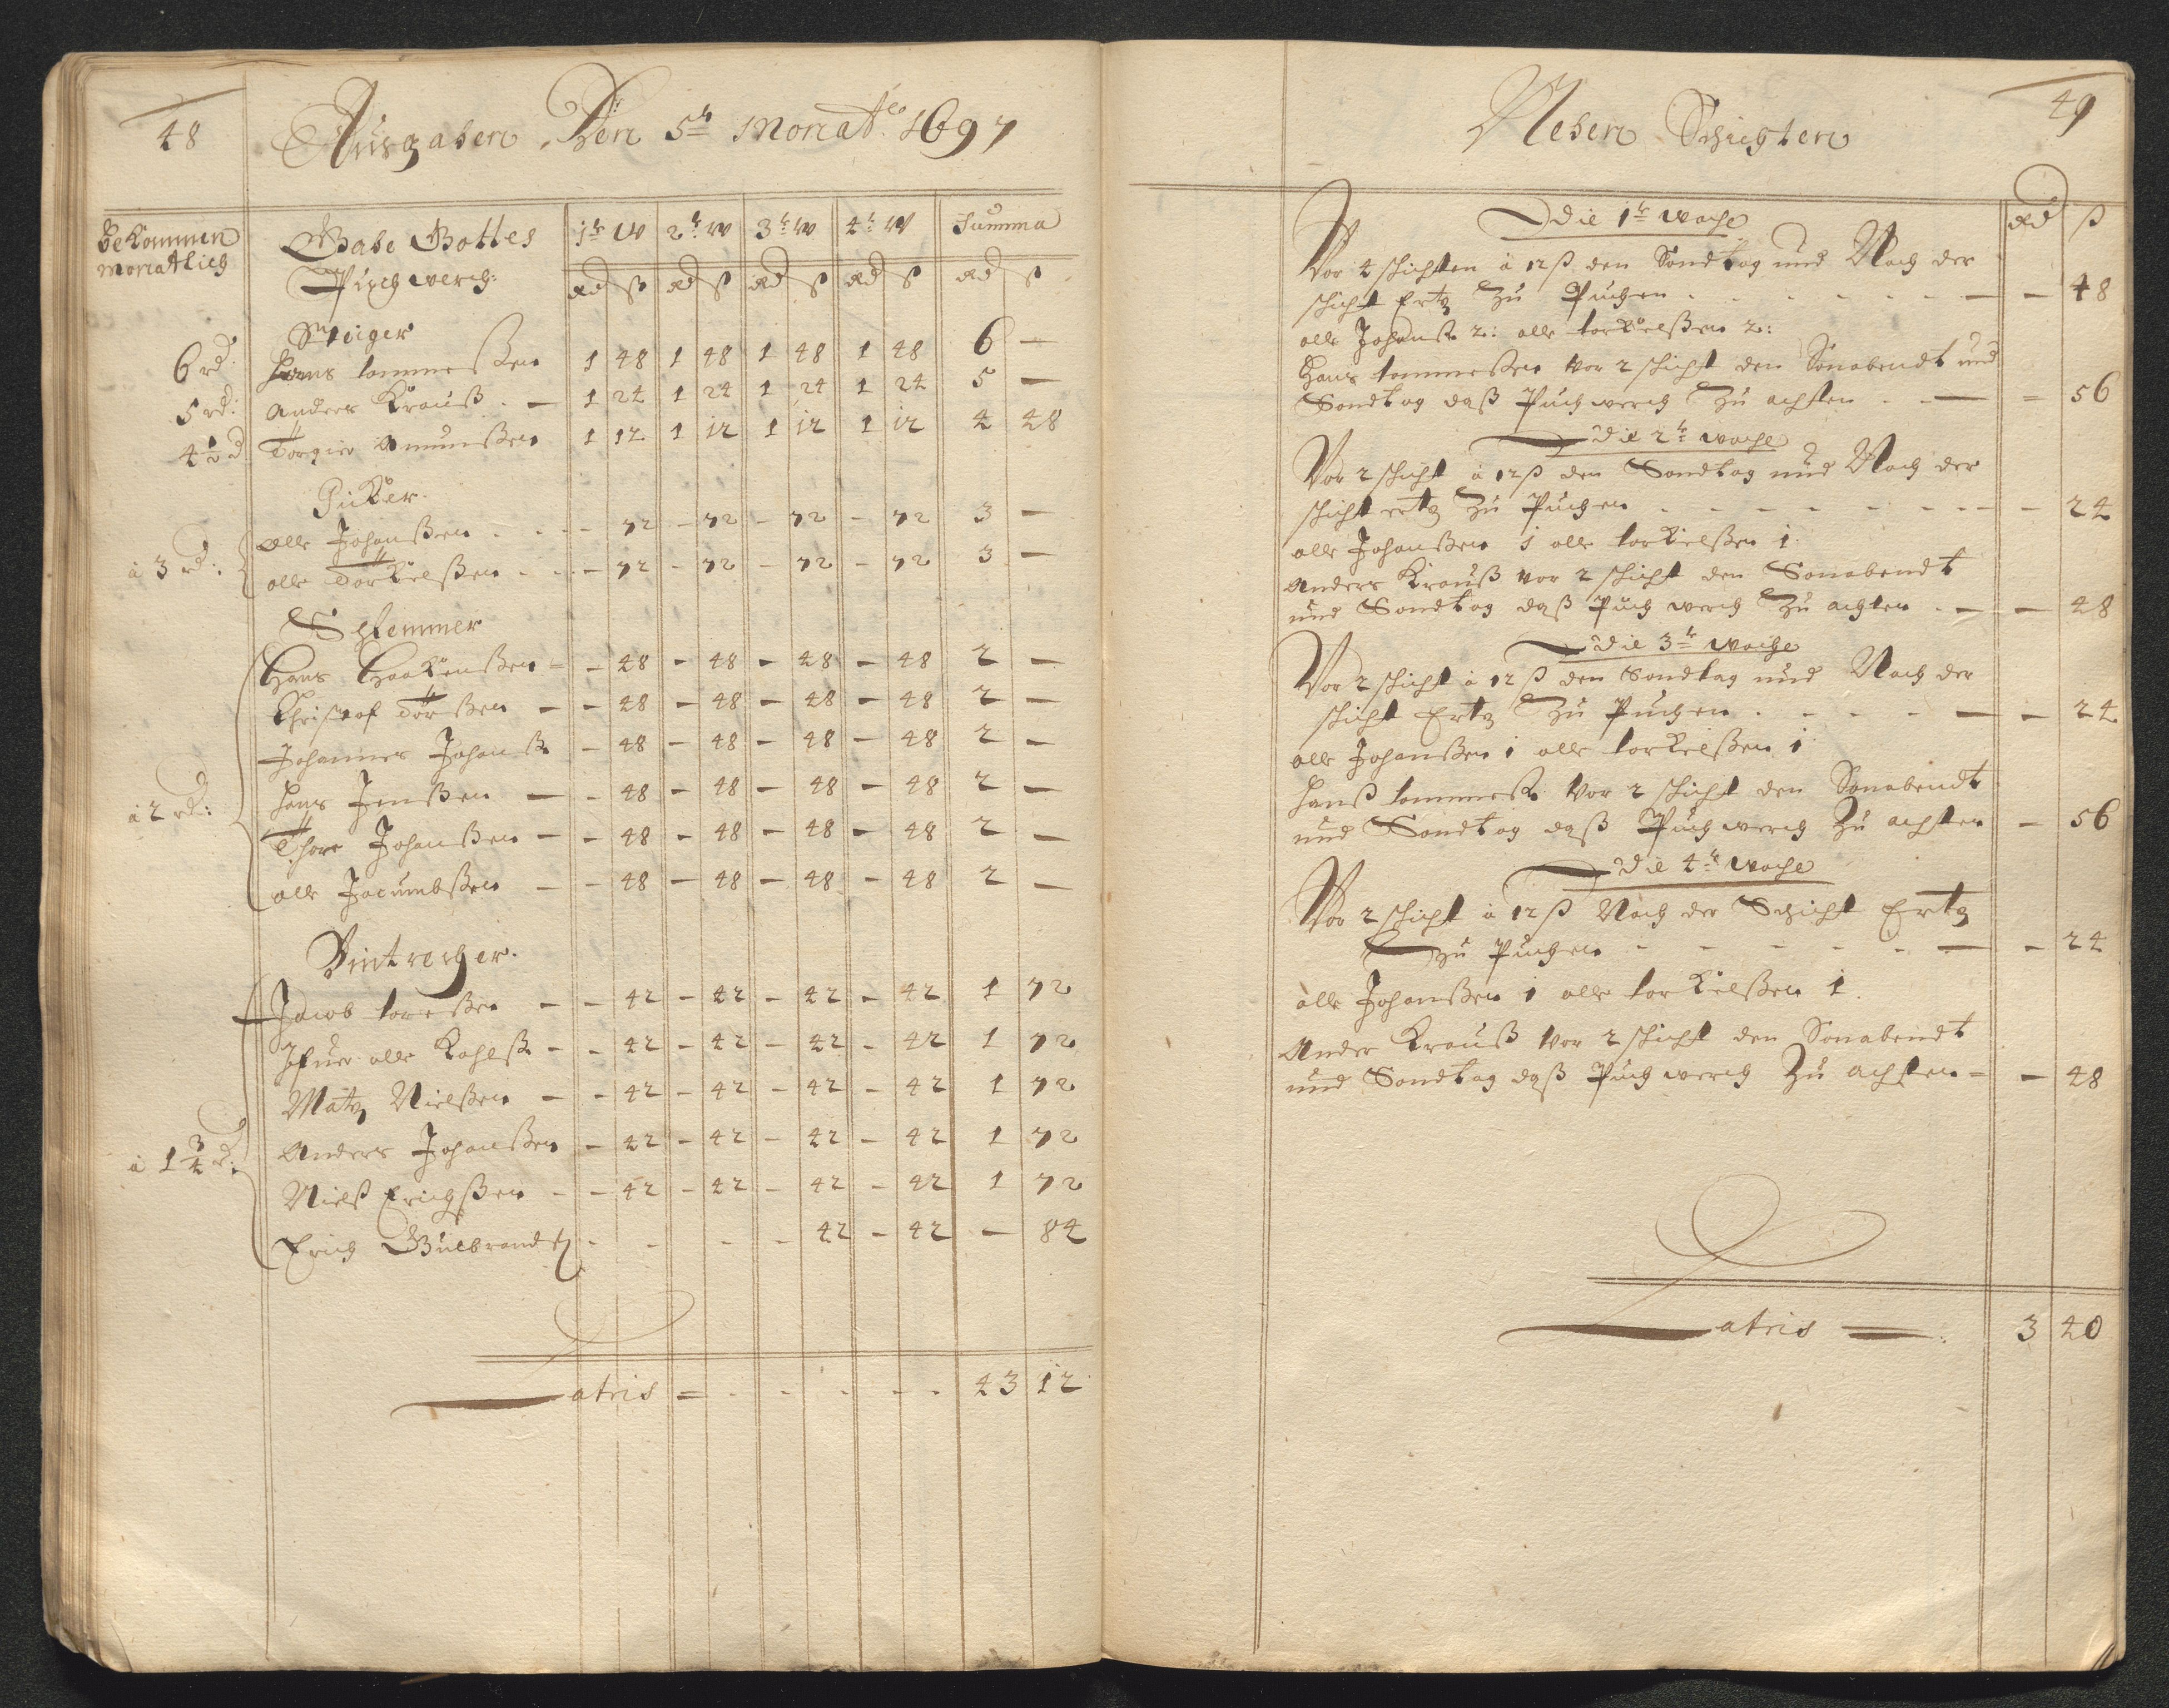 48
Ausgaben Den 5t Monat Ao 1697
Bekommen
monatlich
Gabe Gottes
Puchwerch:
1t W 2t W 3t W 4t W Summa
Rd ß Rd ß Rd ß Rd ß Rd ß
Steiger
6 rd: Hans tommeßen 1 48 1 48 1 48 1 48 6 —
5 rd: Anders Krauß . — 1 24 1 24 1 24 1 24 5 —
4½ d Torgier Amunßen 1 12 1 12 1 12 1 12 4 48
Picker
olle Johanßen - 72 - 72 - 72 - 72 3 —
à 3 rd: olle Torkelßen - 72 - 72 - 72 - 72 3 —
Schlemmer
Hans Haakenßen - 48 - 48 - 48 - 48 2 —
Christof Torßen - 48 - 48 - 48 - 48 2 —
Johannes Johanß - 48 - 48 - 48 - 48 2 —
à 2 rd: Hans Jenßen - 48 - 48 - 48 - 48 2 —
Thore Johanßen - 48 - 48 - 48 - 48 2 —
olle Jacumbßen - 48 - 48 - 48 - 48 2 —
Jacob toreßen - 42 - 42 - 42 - 42 1 72
olle Kahlß - 42 - 42 - 42 - 42 1 72
Matz Nielßen - 42 - 42 - 42 - 42 1 72
à 1¾ d: Anders Johanßen - 42 - 42 - 42 - 42 1 72
Nielß Erichßen - 42 - 42 - 42 - 42 1 72
Erich Gulbrandß - - - - 42 - 42 — 84
Latris = 43 12
49
Neben Schichten
Rd ß
Die 1t woche
Vor 4 schichten à 12 ß den Sondtag und Nach der
schicht Ertz Zu Puchen — 48
olle Johanß 2: olle torkelßen 2:
Hans tommeßen vor 2 schicht den Sonabendt und
Sondtag daß Puchwerch Zu achten = 56
Die 2t woche
Vor 2 schicht à 12 ß den Sondtag und Nach der
schicht ertz Zu Puchen - 24
olle Johanßen 1 olle torkielßen 1.
Anders Krauß vor 2 schicht den Sonabendt
und Sondtag daß Puch werch Zu achten — 48
Die 3t woche
Vor 2 schicht à 12 ß den Sondtag und Nach der
schicht Ertz Zu Puchen — 24
olle Johanßen 1 olle torkielßen 1
Hanß tommeß vor 2 schicht den Sonabendt
und Sondtag daß Puchwerch Zu achten — 56
Die 4t woche
Vor 2 schicht à 12 ß Nach der Schicht Ertz
Zu Puchen - 24
olle Johanßen 1 olle torkielßen 1.
Ander Krauß vor 2 schicht den Sonabendt
und Sondtag daß Puchwerch Zu achten — 48
Latris 3 40